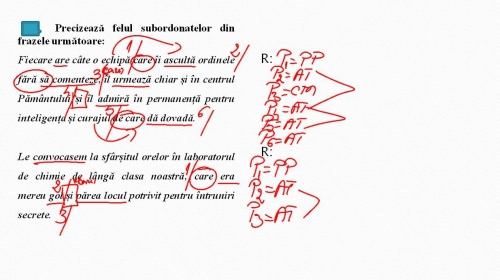 Precizează felul subordonatelor din
frazele următoare:
Fiecare are câte o echipă care îi ascultă ordinele
fără să comenteze, îl urmează chiar și în centrul
Pământului și îl admiră în permanență pentru
inteligența și curajul de care dă dovadă.
Le convocasem la sfârșitul orelor în laboratorul
de chimie de lângă clasa noastră, care era
mereu gol și părea locul potrivit pentru întruniri
secrete.
1/
2/
3/
5/
6/
1/
2/
3/
R:
P1=PP
P2=AT
P3=CM
P5=AT
P6=AT
R:
P1=PP
P2=AT
P3=AT